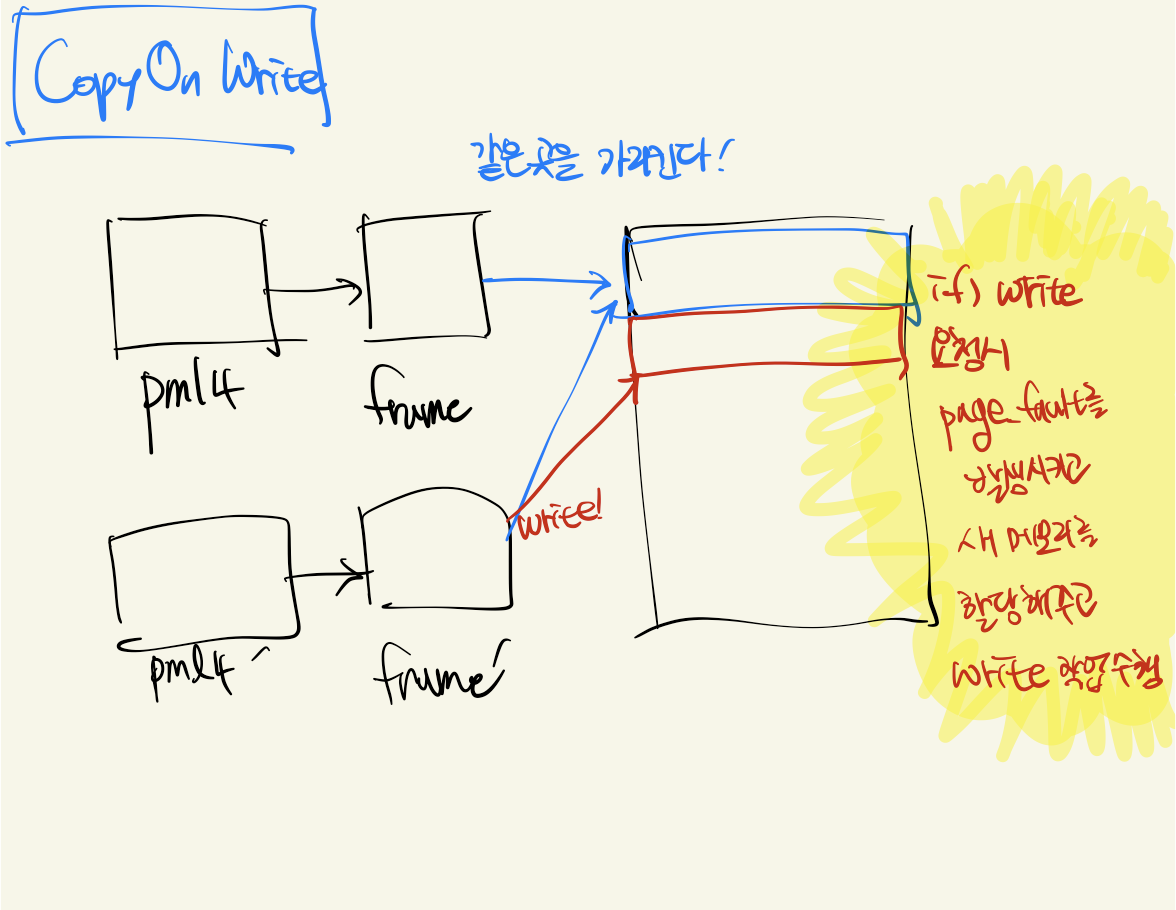 Copy On Write
같은곳을 가리킨다!
pml4
frame
write!
pml4´
frame´
if) write
요청시
page_fault를
발생시키고
새 메모리를
할당해주고
write 작업수행